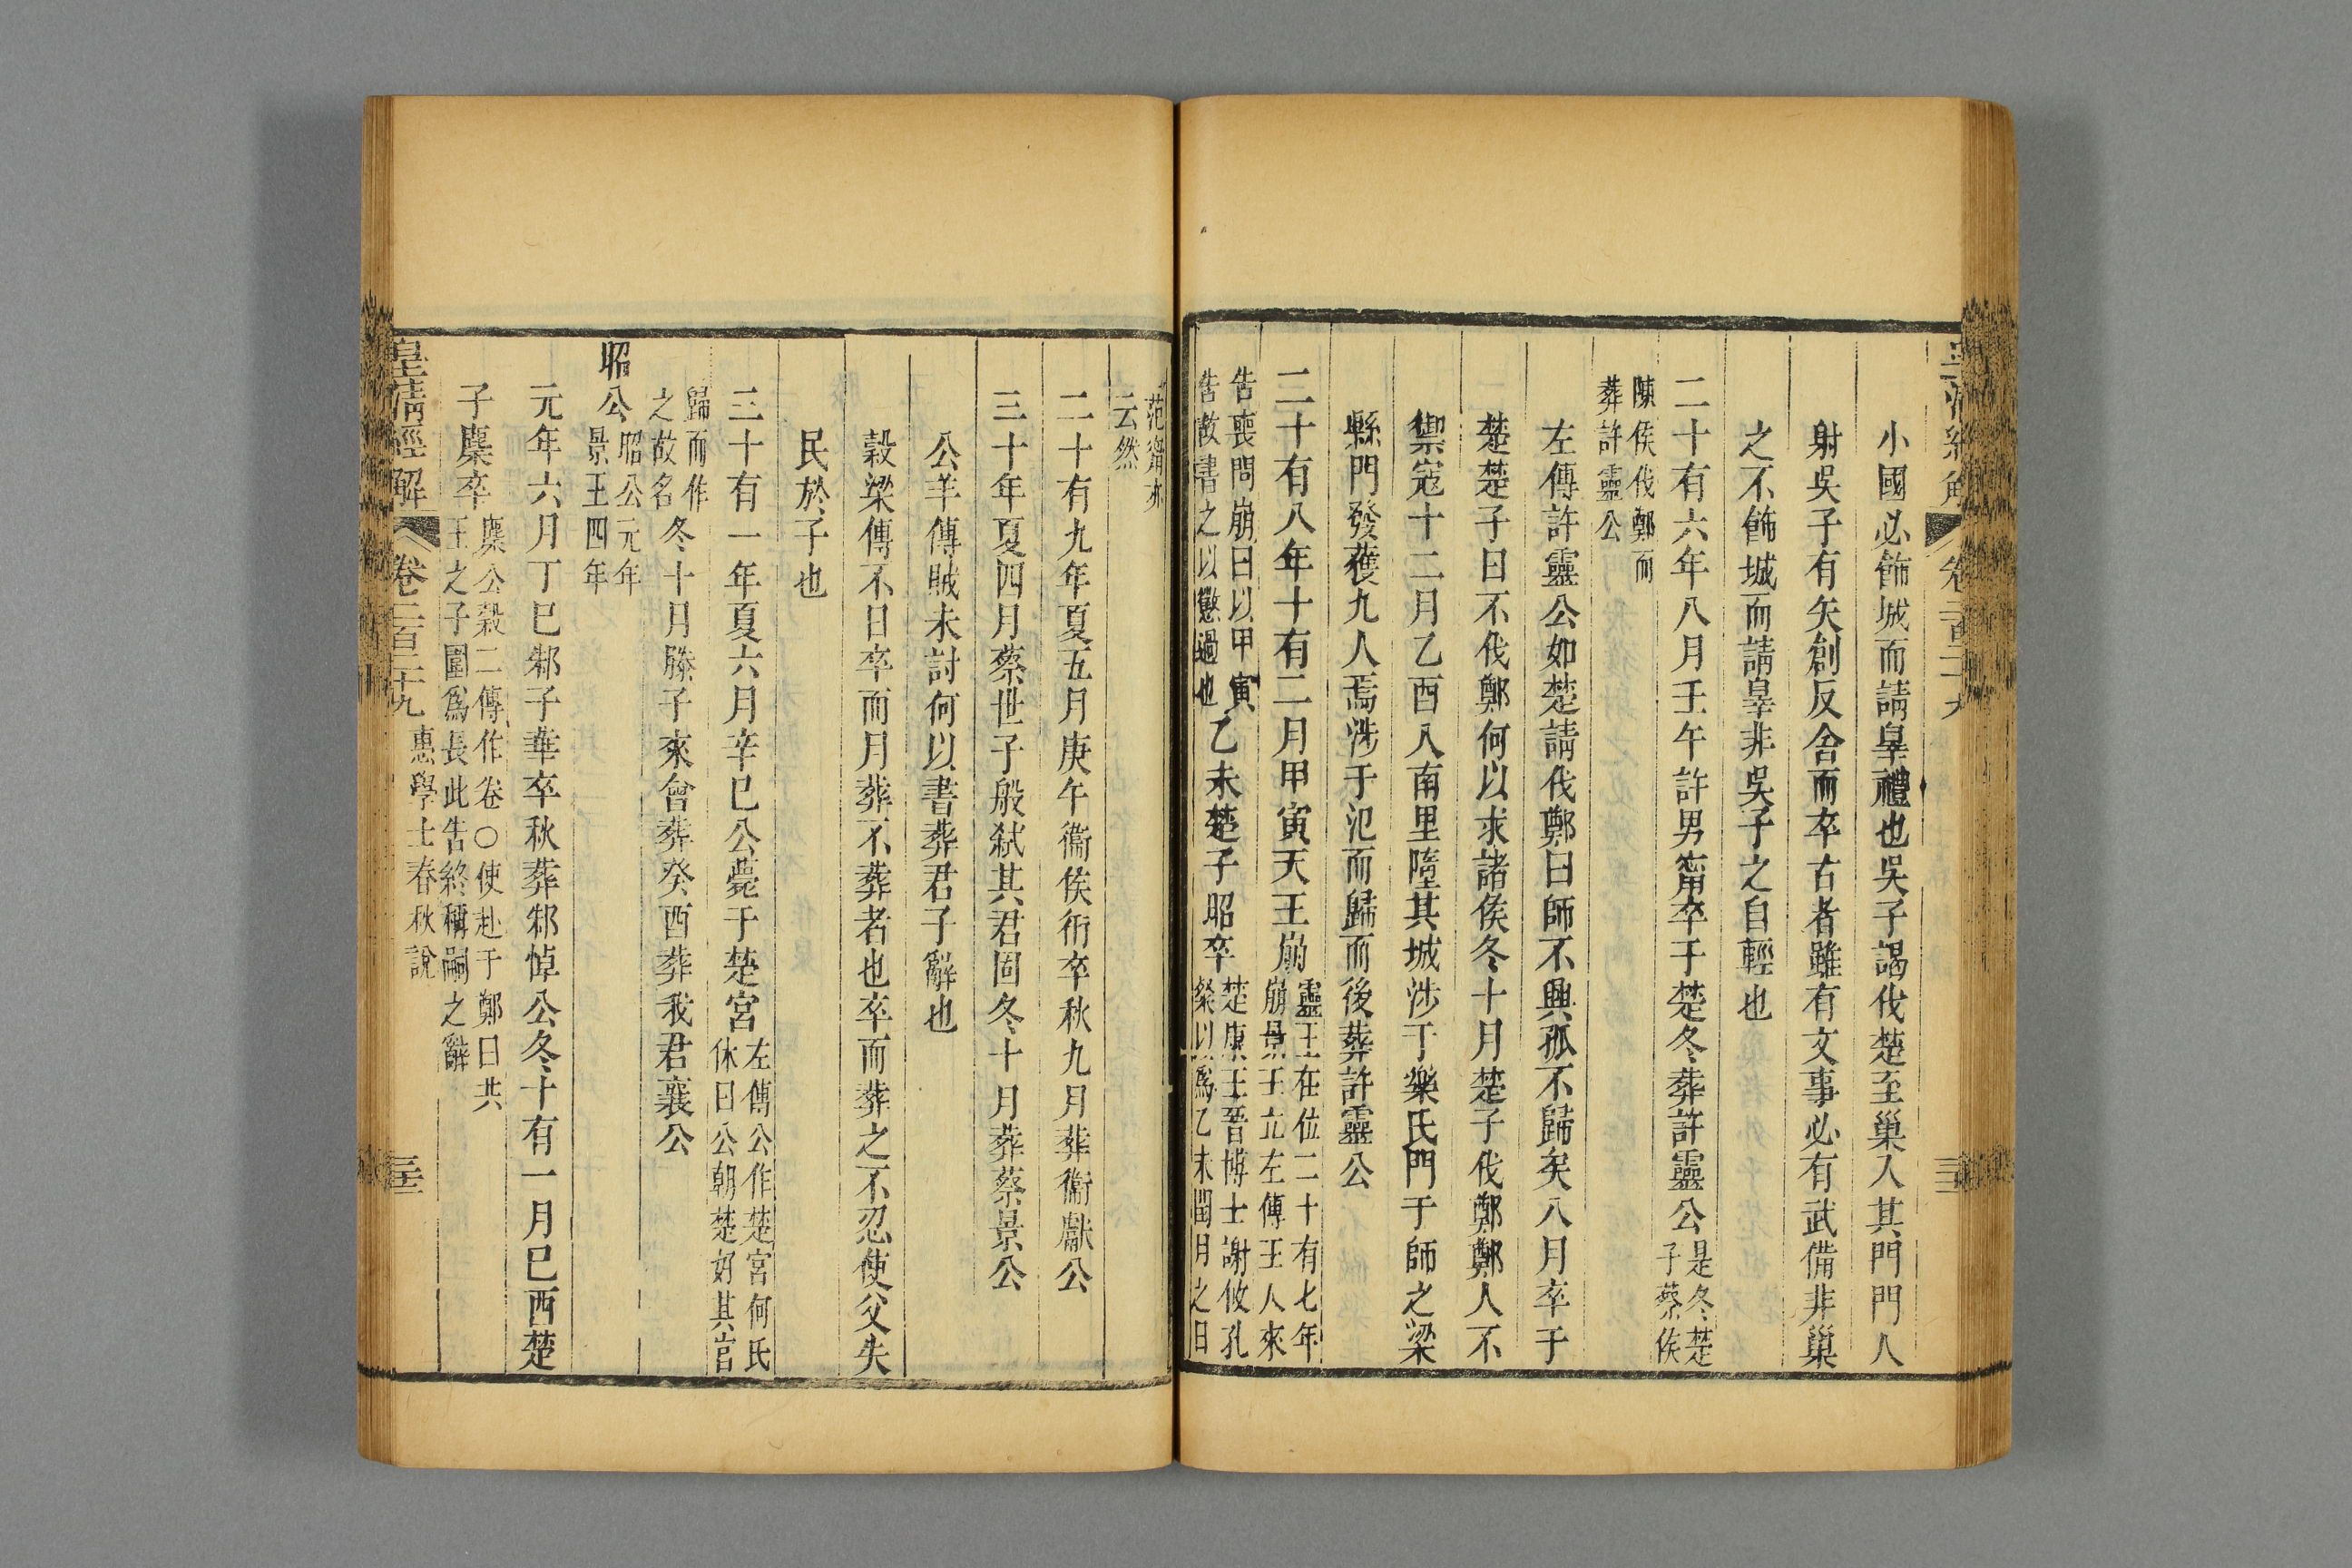 小國必飾城而請辠禮也吳子謁伐楚至巢入其門門人
射吳子有矢創反舍而卒古者雖有文事必有武備非巢
之不飾城而請辠非吳子之自輕也
二十有六年八月壬午許男甯卒于楚冬葬許靈公是冬楚
子蔡侯
陳侯伐鄭而
葬許靈公
左傳許靈公如楚請伐鄭曰師不興孤不歸矣八月卒于
楚楚子曰不伐鄭何以求諸侯冬十月楚子伐鄭鄭人不
禦寇十二月乙酉入南里隳其城涉于樂氏門于師之梁
縣門發獲九人焉涉于氾而歸而後葬許靈公
二十有八年十有二月甲寅天王崩靈王在位二十有七年
崩景王立左傳王人來
告喪問崩日以甲寅
告故書之以懲過也乙未楚子昭卒楚康王晉博士謝攸孔
粲以爲乙未閏月之日
范甯亦
云然
二十有九年夏五月庚午衞侯衎卒秋九月葬衞獻公
三十年夏四月蔡世子般弒其君固冬十月葬蔡景公
公羊傳賊未討何以書葬君子辭也
穀梁傳不日卒而月葬不葬者也卒而葬之不忍使父失
民於子也
三十有一年夏六月辛巳公薨于楚宮左傳公作楚宮何氏
休曰公朝楚好其宮
歸而作
之故名冬十月滕子來會葬癸酉葬我君襄公
昭公昭公元年
景王四年
元年六月丁巳邾子華卒秋葬邾悼公冬十有一月己酉楚
子麇卒麇公穀二傳作卷○使赴于鄭曰共
王之子圍爲長此告終稱嗣之辭
皇淸經解 卷二百二十九 惠學士春秋說